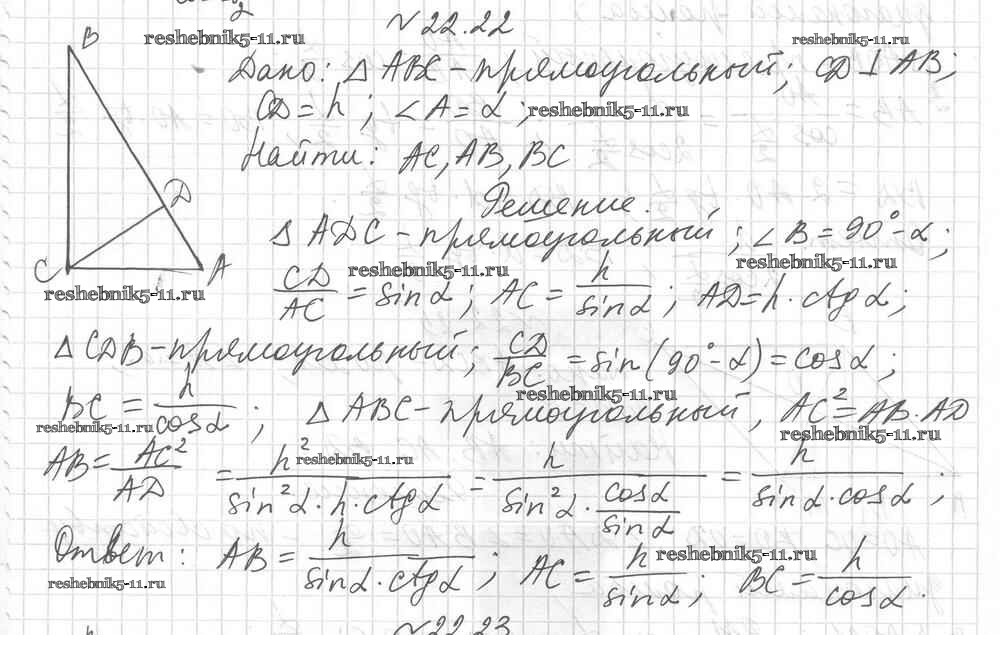 N 22.22
reshebnik5-11.ru
reshebnik5-11.ru
B
D
C
A
reshebnik5-11.ru
Дано: Δ ABC - прямоугольный; CD ⊥ AB;
CD = h; ∠A = α; reshebnik5-11.ru
Найти: AC, AB, BC
Решение.
Δ ADC - прямоугольный; ∠B = 90° - α;
reshebnik5-11.ru reshebnik5-11.ru
CD/AC = sin α; AC = h/sin α; AD = h · ctg α;
Δ CDB - прямоугольный; CD/BC = sin(90° - α) = cos α;
reshebnik5-11.ru
BC = h/cos α; Δ ABC - прямоугольный, AC² = AB · AD
reshebnik5-11.ru reshebnik5-11.ru
AB = AC²/AD = h²/(sin² α · h · ctg α) = h/(sin² α · cos α/sin α) = h/(sin α · cos α);
reshebnik5-11.ru
Ответ: AB = h/(sin α · ctg α); AC = h/sin α; BC = h/cos α.
reshebnik5-11.ru reshebnik5-11.ru
N 22.23